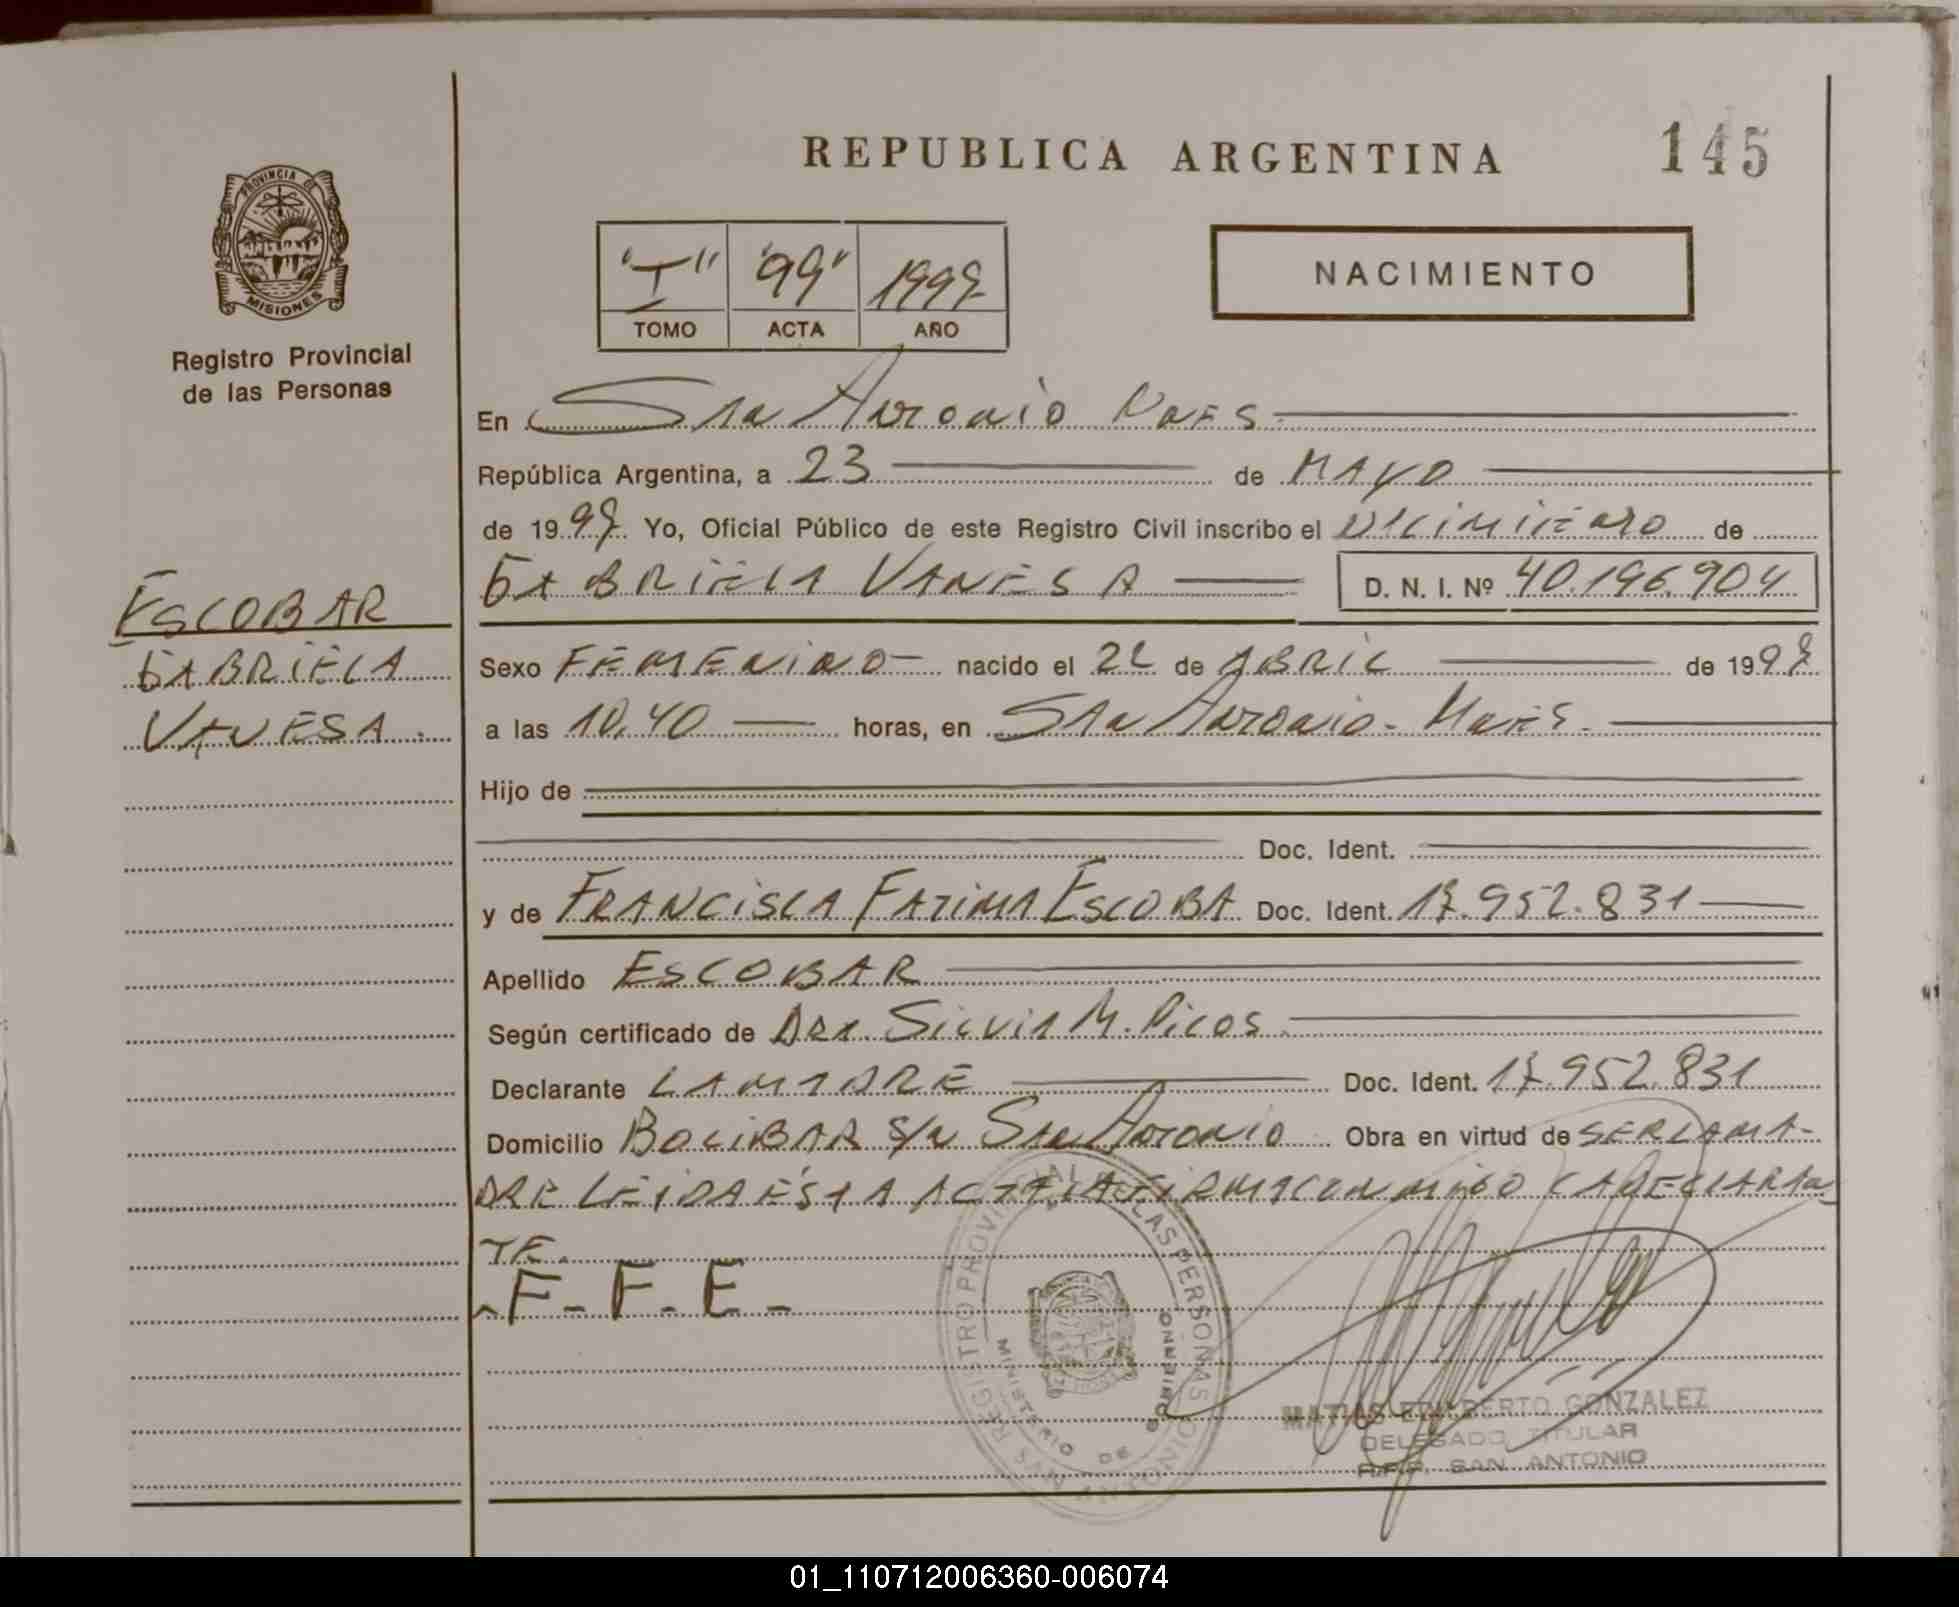 REPUBLICA ARGENTINA
145
PROVINCIA DE
MISIONES
Registro Provincial
de las Personas
"I" "99" 1997
TOMO ACTA AÑO
NACIMIENTO
En San Antonio Mnes
República Argentina, a 23 de MAYO
de 1997 Yo, Oficial Público de este Registro Civil inscribo el de
GABRIELA VANESA D. N. I. Nº 40.196.904
ESCOBAR
GABRIELA
VANESA.
Sexo FEMENINO nacido el 22 de ABRIL de 1997
a las 10,40 horas, en San Antonio - Mnes.
Hijo de
Doc. Ident.
y de FRANCISCA FATIMA ESCOBA Doc. Ident. 17.952.831
Apellido ESCOBAR
Según certificado de Dra. Silvia M. Picos
Declarante LA MADRE Doc. Ident. 17.952.831
Domicilio BOLIBAR S/N San Antonio Obra en virtud de SER LA MA-
DRE LEIDA ESTA ACTA LA FIRMA CONMIGO LA DECLARAN
TE.
-F-F-E-
REGISTRO PROVINCIAL DE LAS PERSONAS
MINISTERIO DE GOBIERNO
SAN ANTONIO
MATIAS EDALBERTO GONZALEZ
DELEGADO TITULAR
R.P.P. SAN ANTONIO
01_110712006360-006074